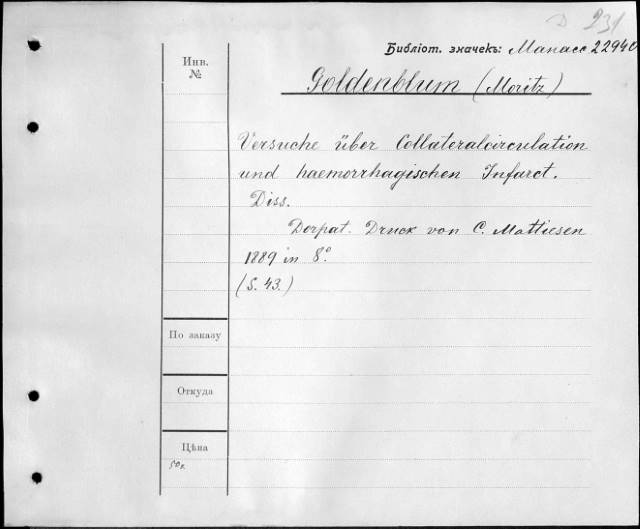 D 231
Библіот. значекъ: Манасс 22940
Инв.
№
Goldenblum (Moritz)
Versuche über Collateralcirculation
und haemorrhagischen Infarct.
Diss.
Dorpat. Druck von C. Mattiesen
1889 in 8°
(S. 43.)
По заказу
Откуда
Цѣна
50к.